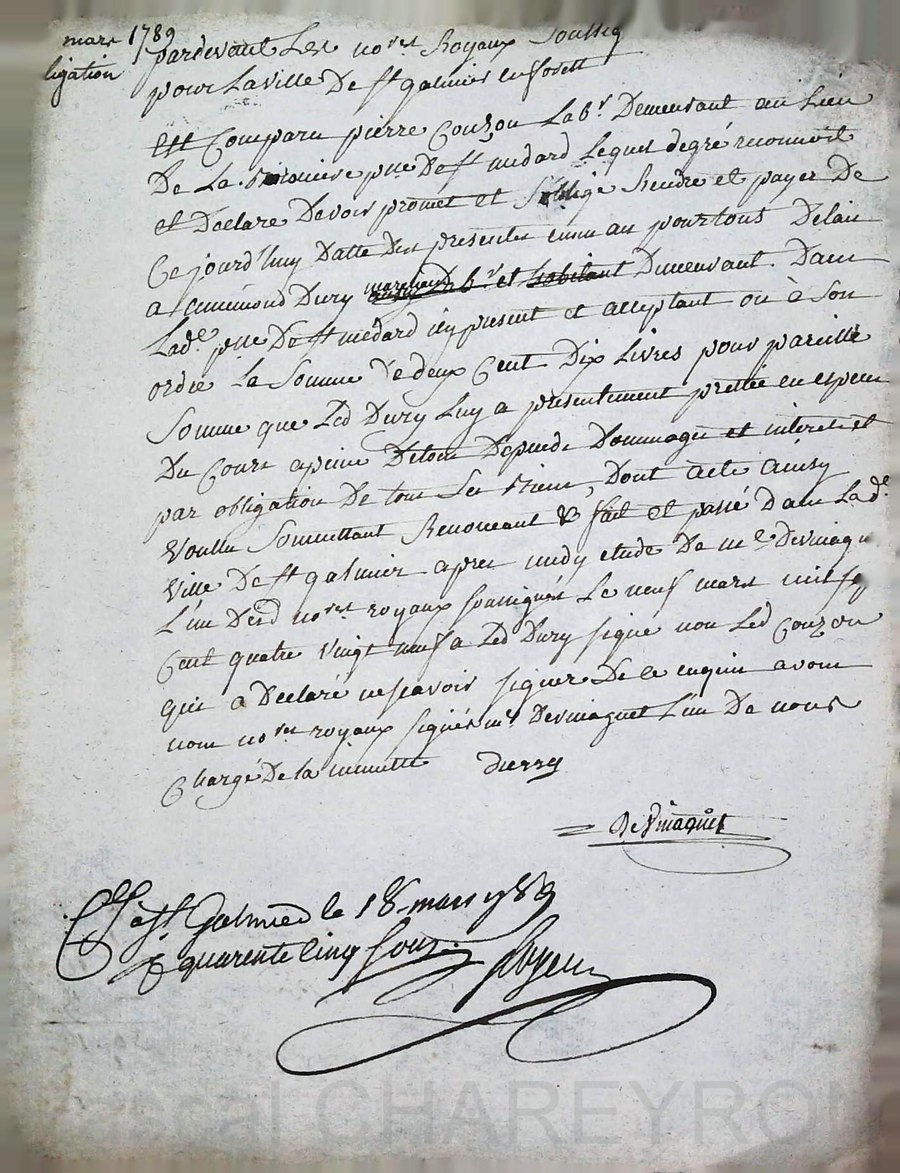 mars 1789
ligation
pardevant Les no.res Royaux Soussig
pour La ville De st galmier en forest
est Comparu pierre Couzon Lab.r Demeurant au Lieu
De La p.sse De st medard Lequel degré reconnoit
et Declare Devoir promet et s'oblige Rendre et payer De
Ce jourd'huy Datte Des presentes en un an pour tous Delais
a Dury marchand Demeurant Dans
Lad.e p.sse De st medard icy present et acceptant ou à Son
ordre La Somme De deux Cent Dix Livres pour pareille
Somme que Led Dury Luy a présentement prettée en especes
Du Cours a peine De tous Depends Dommages et interets et
par obligation De tous Ses Biens, Dont acte Ainsy
Voullu Soumettant Renonceant & fait et passé Dans Lad.e
Ville De st galmier apres midy etude De m.e Devinaqu
L'un Desd no.res royaux soussignés Le neuf mars mil sep
Cent quatre vingt neuf a Led Dury signé non Led Couzon
qui a Declaré ne scavoir signer De ce enquis avons
nous no.res royaux signés m.e Devinaquet L'un De nous
Chargé De la minutte Duerry
Devinaquet
C.lé a st Galmier le 18 mars 1789
R quarente cinq sous.